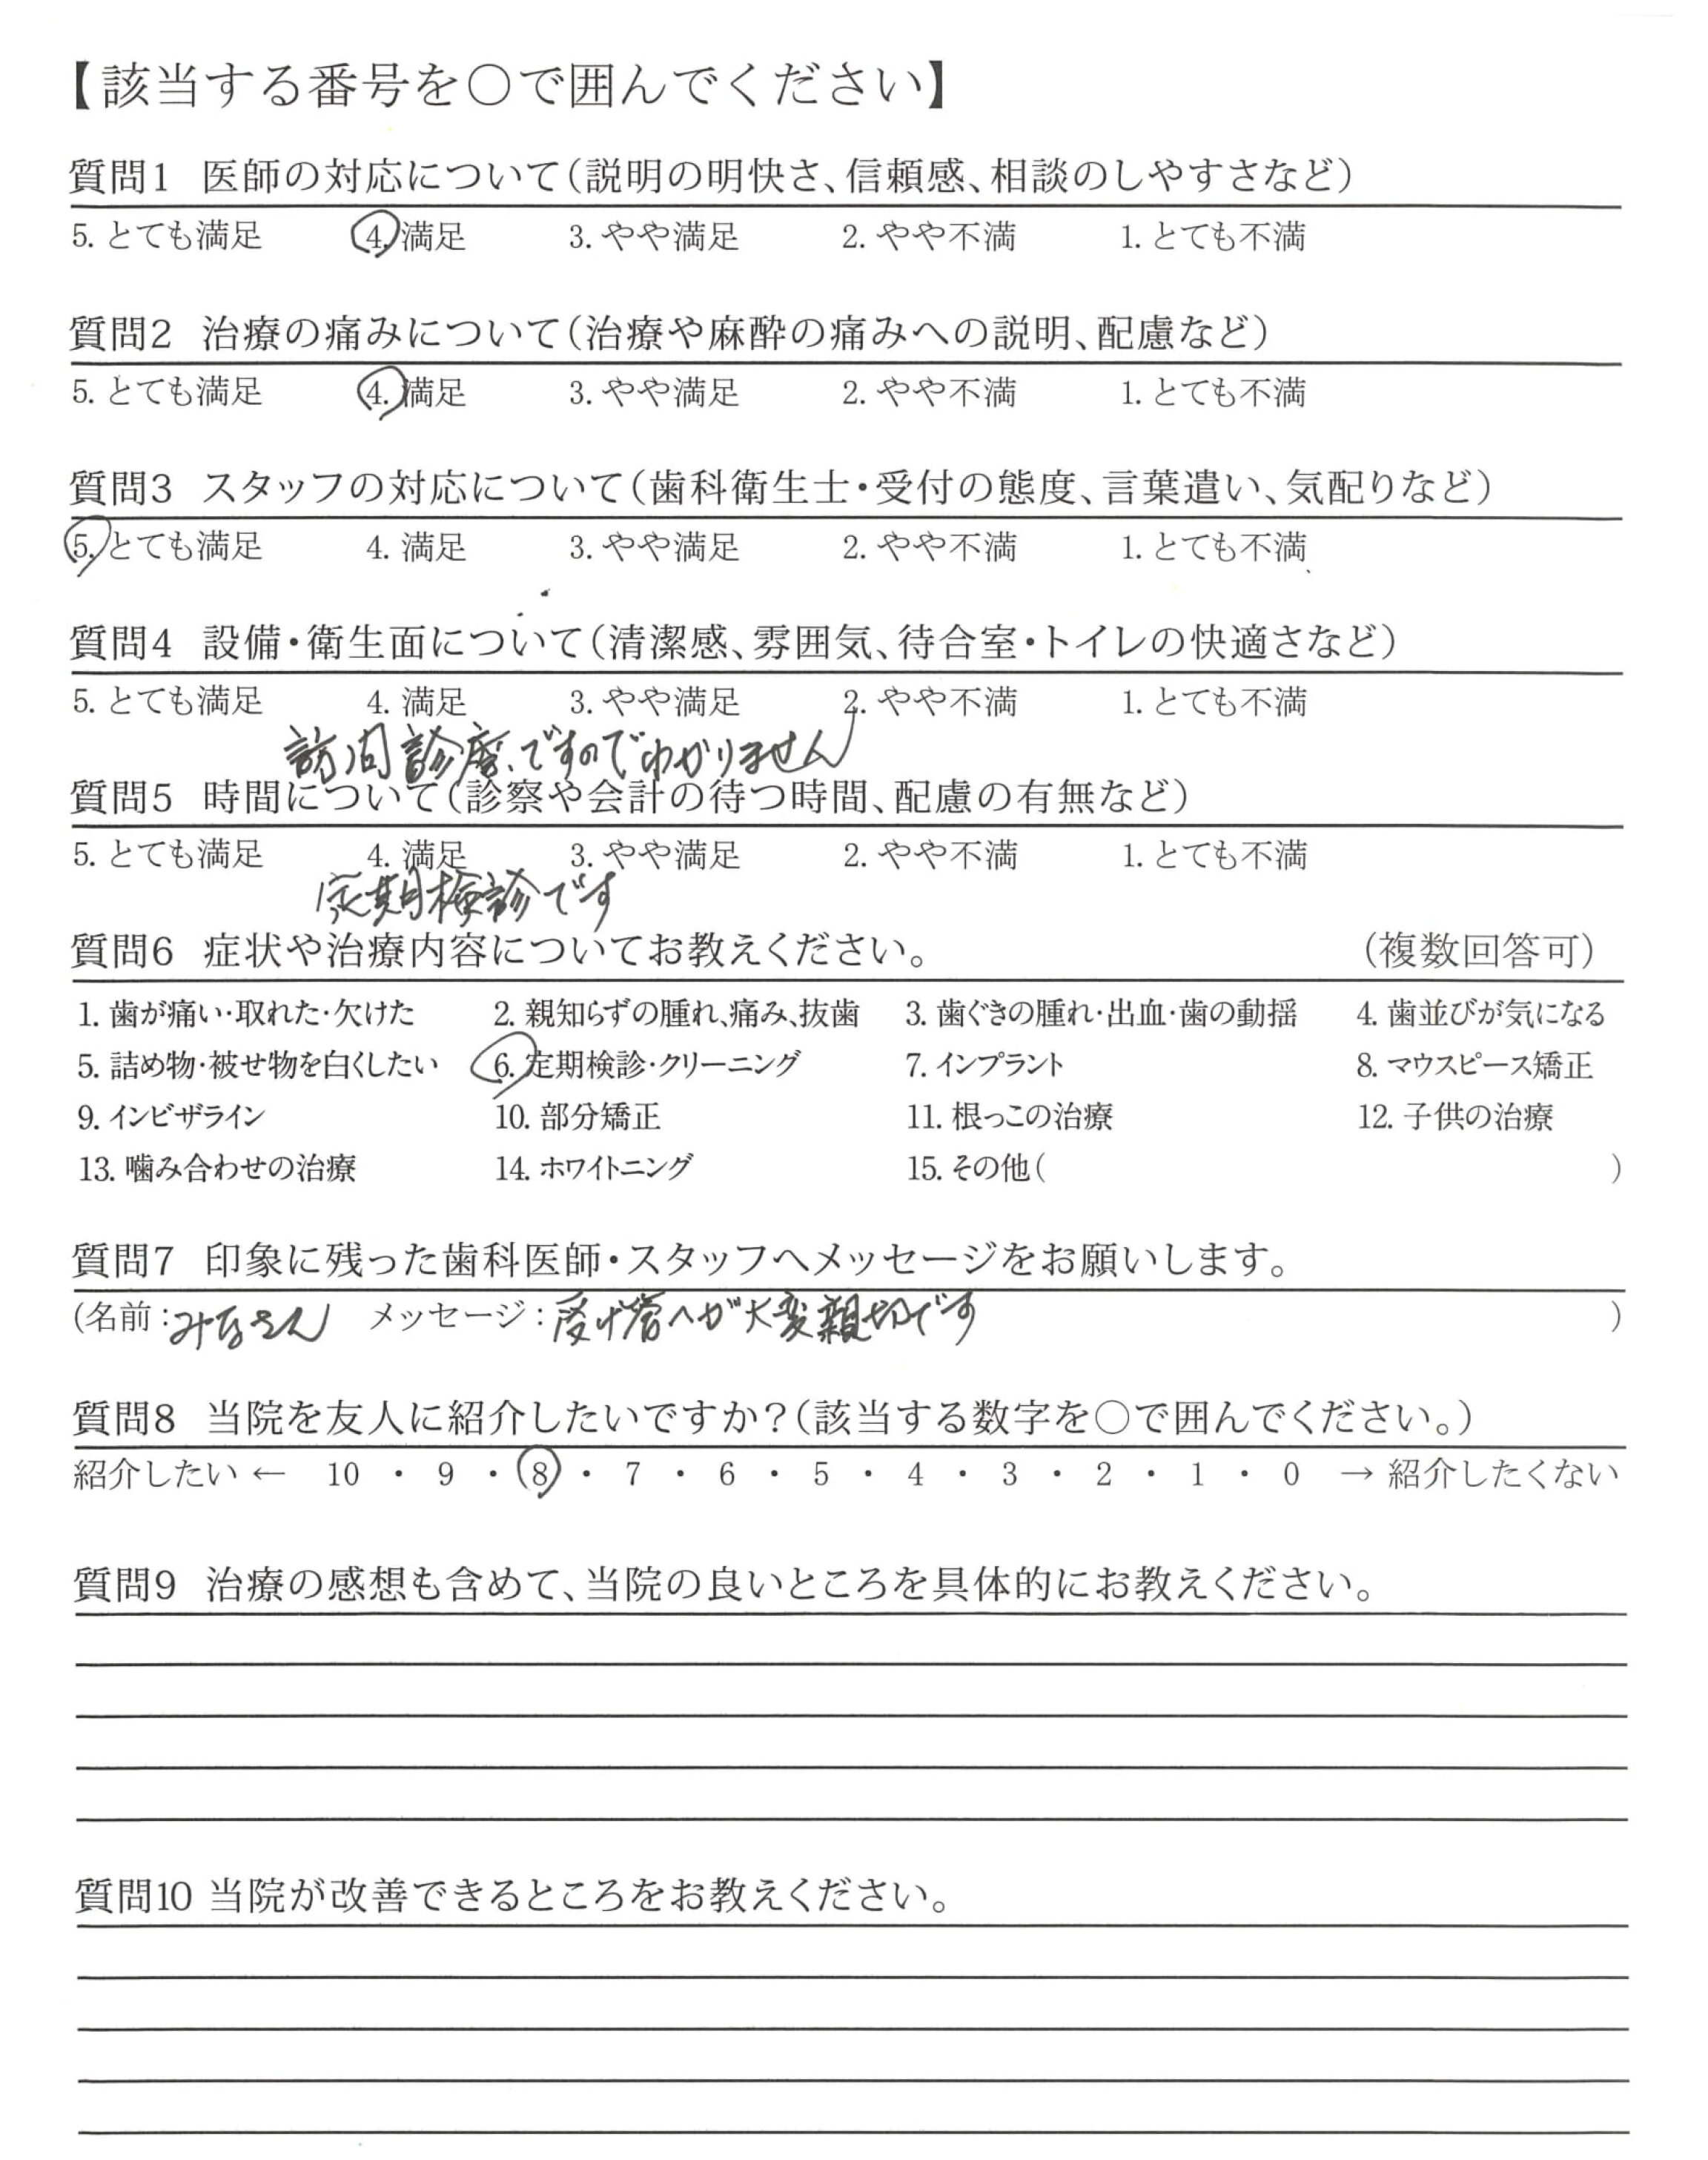 【該当する番号を○で囲んでください】
質問1 医師の対応について(説明の明快さ、信頼感、相談のしやすさなど)
5. とても満足 4. 満足 3. やや満足 2. やや不満 1. とても不満
質問2 治療の痛みについて(治療や麻酔の痛みへの説明、配慮など)
5. とても満足 4. 満足 3. やや満足 2. やや不満 1. とても不満
質問3 スタッフの対応について(歯科衛生士・受付の態度、言葉遣い、気配りなど)
5. とても満足 4. 満足 3. やや満足 2. やや不満 1. とても不満
質問4 設備・衛生面について(清潔感、雰囲気、待合室・トイレの快適さなど)
5. とても満足 4. 満足 3. やや満足 2. やや不満 1. とても不満
訪問診療ですのでわかりません
質問5 時間について(診察や会計の待つ時間、配慮の有無など)
5. とても満足 4. 満足 3. やや満足 2. やや不満 1. とても不満
定期検診です
質問6 症状や治療内容についてお教えください。 (複数回答可)
1. 歯が痛い・取れた・欠けた 2. 親知らずの腫れ、痛み、抜歯 3. 歯ぐきの腫れ・出血・歯の動揺 4. 歯並びが気になる
5. 詰め物・被せ物を白くしたい 6. 定期検診・クリーニング 7. インプラント 8. マウスピース矯正
9. インビザライン 10. 部分矯正 11. 根っこの治療 12. 子供の治療
13. 噛み合わせの治療 14. ホワイトニング 15. その他( )
質問7 印象に残った歯科医師・スタッフへメッセージをお願いします。
(名前:みなさん メッセージ:受け答へが大変親切です )
質問8 当院を友人に紹介したいですか?(該当する数字を○で囲んでください。)
紹介したい ← 10 ・ 9 ・ 8 ・ 7 ・ 6 ・ 5 ・ 4 ・ 3 ・ 2 ・ 1 ・ 0 → 紹介したくない
質問9 治療の感想も含めて、当院の良いところを具体的にお教えください。
質問10 当院が改善できるところをお教えください。